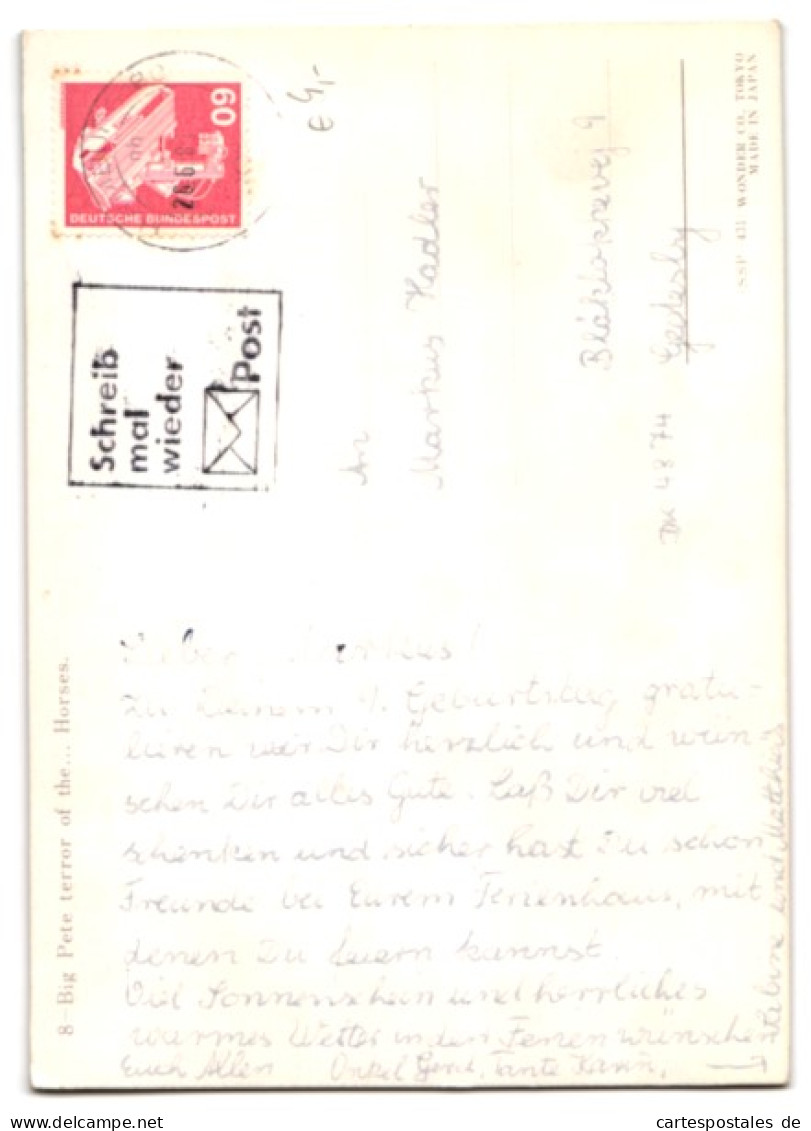 60
DEUTSCHE BUNDESPOST
€ 4,-
Schreib
mal
wieder
Post
An
Markus Kadler
Blåklokkevej 9
DK 4874 Gedesby
SSP 435 WONDER CO. TOKYO
MADE IN JAPAN
8–Big Pete terror of the... Horses.
Lieber Markus!
Zu Deinem Geburtstag gratu-
lieren wir Dir herzlich und wün-
schen Dir alles Gute. Laß Dir viel
schenken und sicher hast Du schon
Freunde bei Eurem Ferienhaus, mit
denen Du feiern kannst.
Viel Sonnenschein und herrliches
warmes Wetter in den Ferien wünschen
Euch Allen Onkel Gerd, Tante Karin,
Sabine und Matthias
www.delcampe.net
cartespostales de